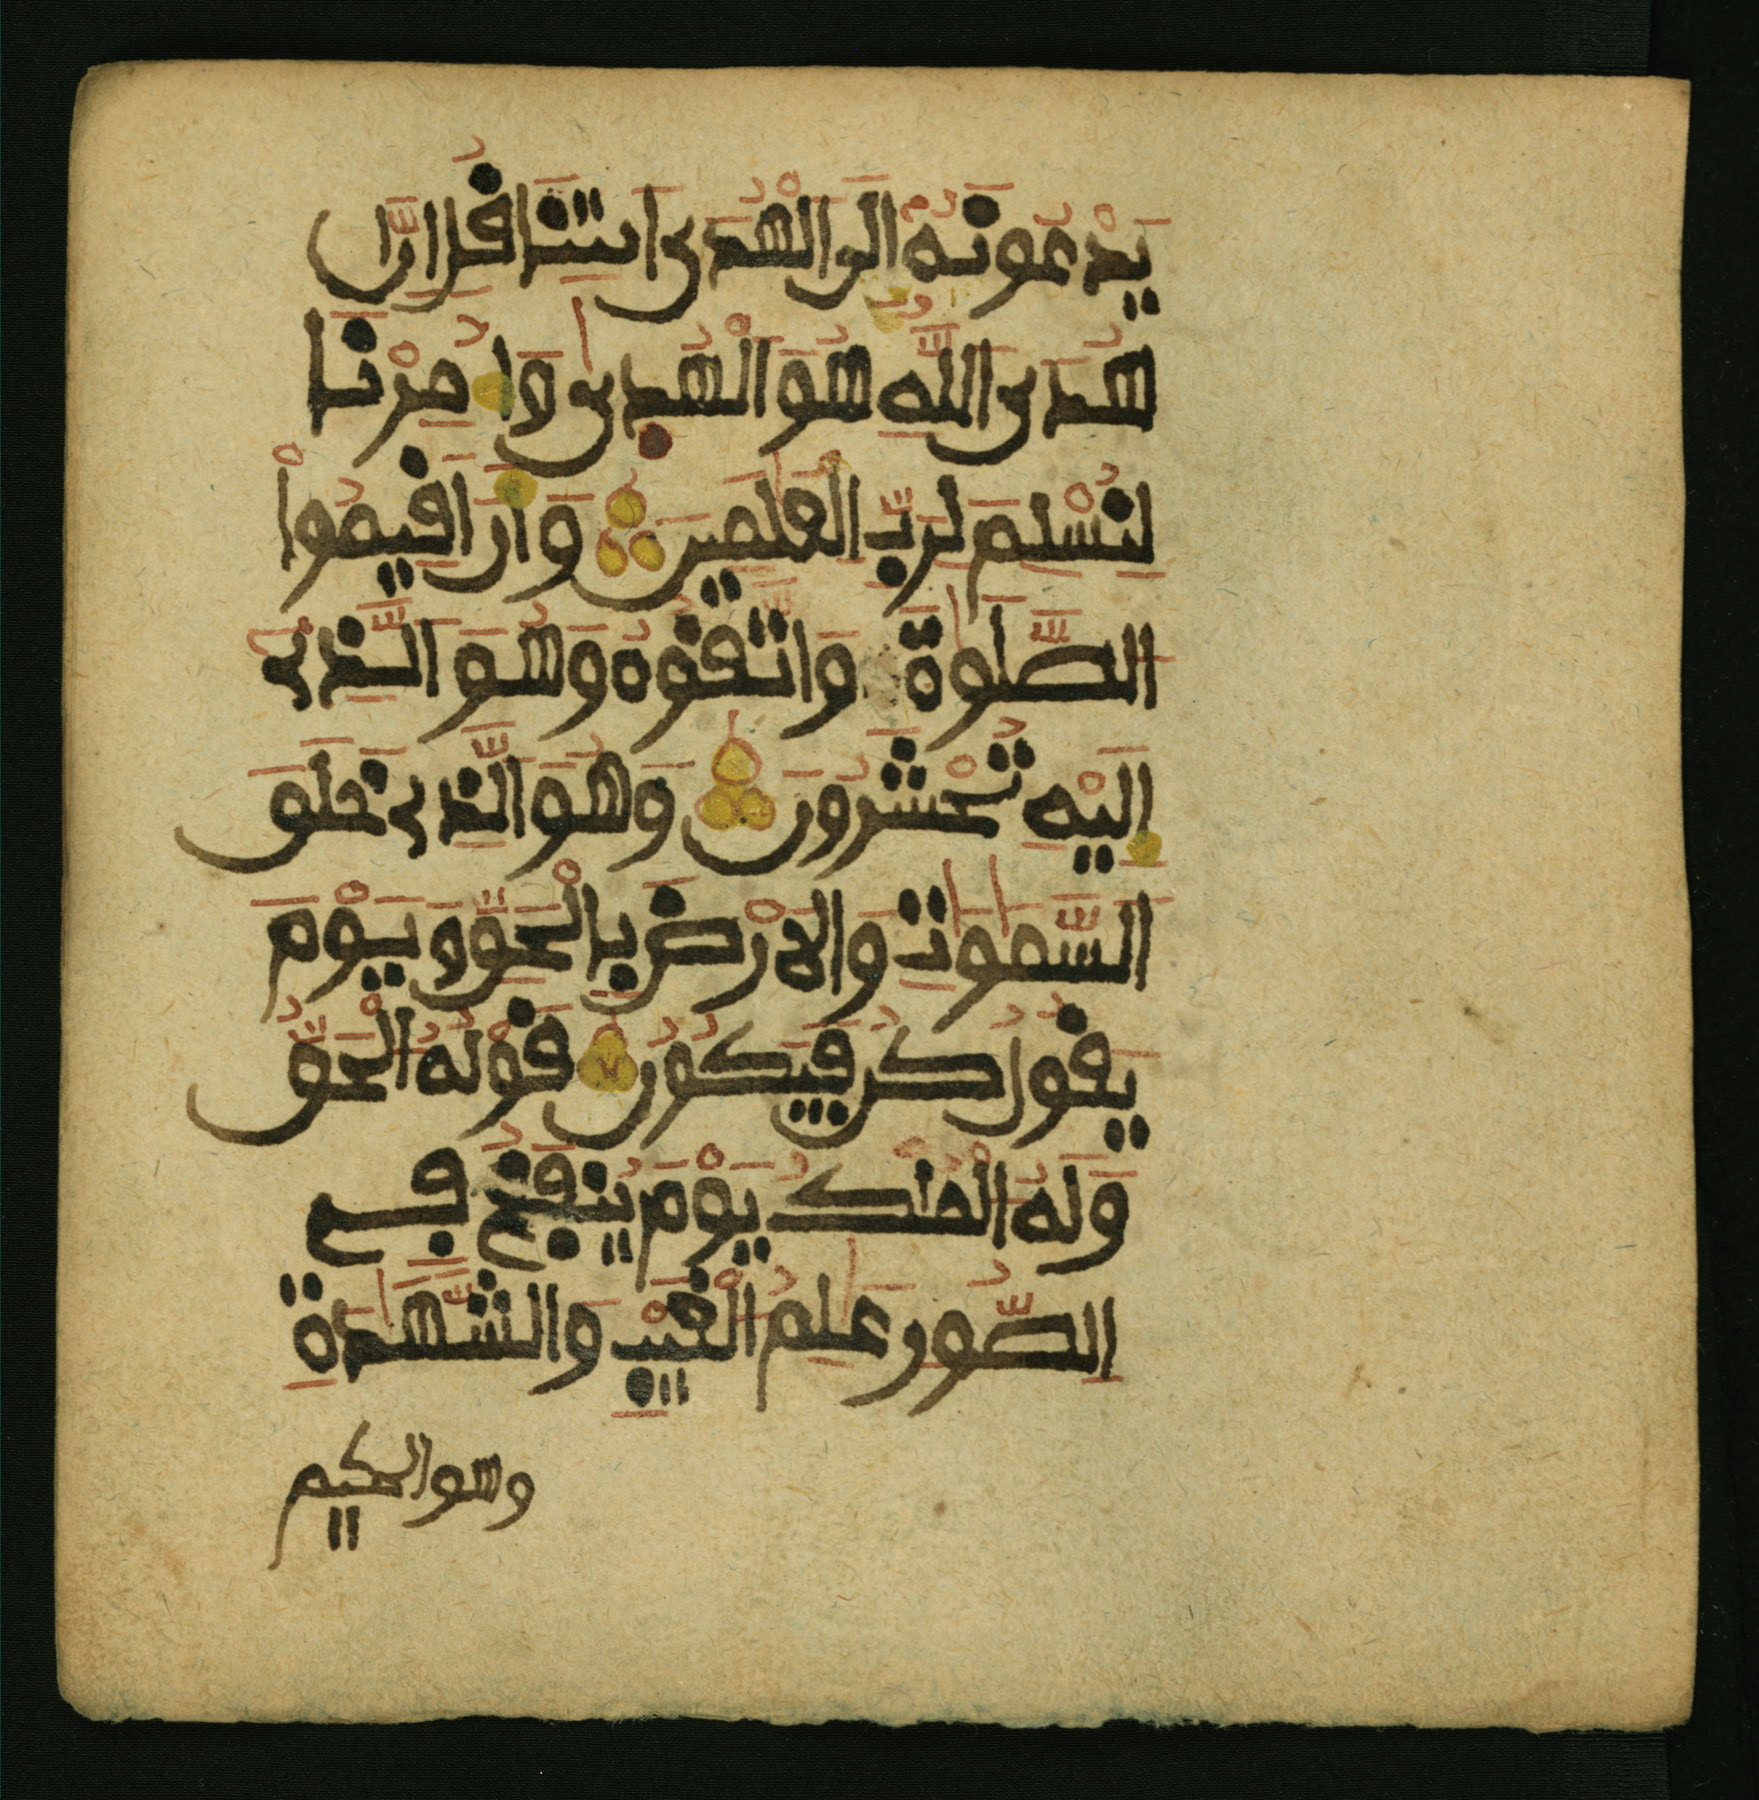 يَدْعُونَهُ إِلَى الْهُدَى ائْتِنَا قُلْ إِنَّ
هُدَى اللَّهِ هُوَ الْهُدَىٰ وَأُمِرْنَا
لِنُسْلِمَ لِرَبِّ الْعَٰلَمِينَ وَأَنْ أَقِيمُواْ
الصَّلَوٰةَ وَاتَّقُوهُ وَهُوَ الَّذِي
إِلَيْهِ تُحْشَرُونَ وَهُوَ الَّذِي خَلَقَ
السَّمَٰوَٰتِ وَالْأَرْضَ بِالْحَقِّ وَيَوْمَ
يَقُولُ كُن فَيَكُونُ قَوْلُهُ الْحَقُّ
وَلَهُ الْمُلْكُ يَوْمَ يُنفَخُ فِي
الصُّورِ عَٰلِمُ الْغَيْبِ وَالشَّهَٰدَةِ
وهو الحكيم